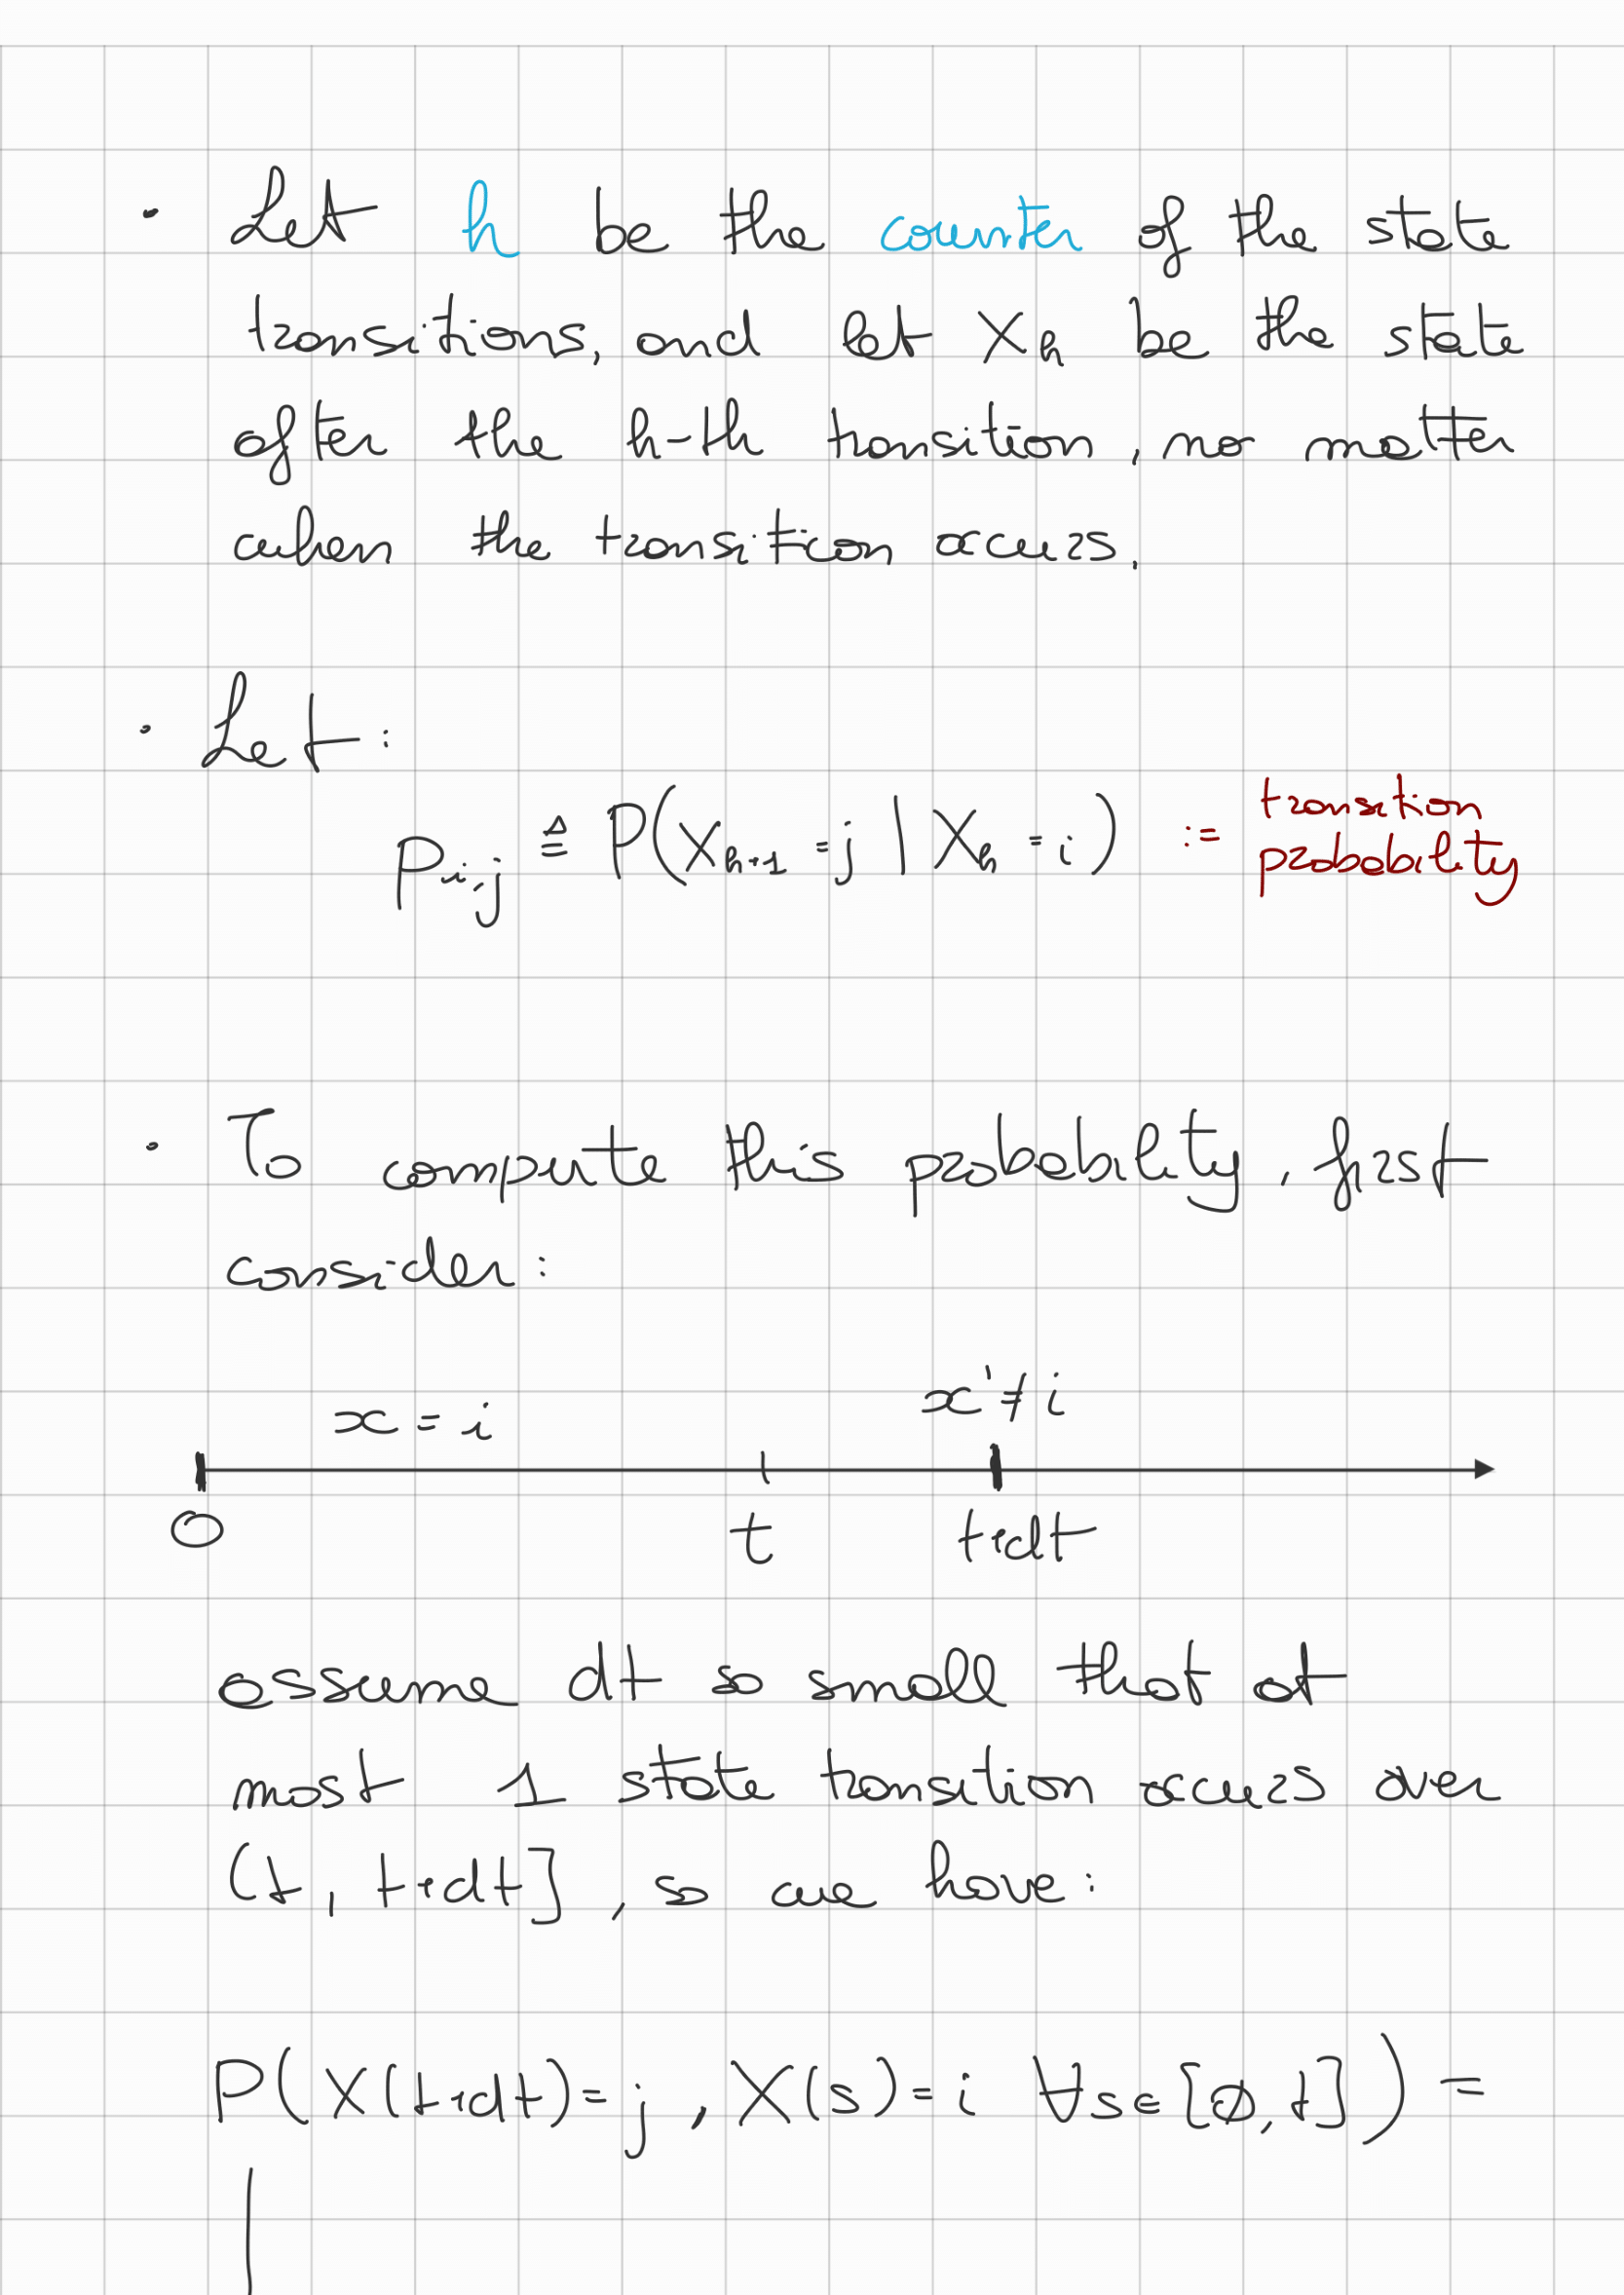 · Let h be the counter of the state
transitions, and let Xh be the state
after the h-th transition, no matter
when the transition occurs.
· Let:
Pi,j ≜ P(Xh+1 = j | Xh = i) := transition probability
· To compute this probability, first
consider:
x = i x' ≠ i
0 t t+dt
assume dt so small that at
most 1 state transition occurs over
(t, t+dt], so we have:
P(X(t+dt)=j, X(s)=i ∀s∈[0,t]) =